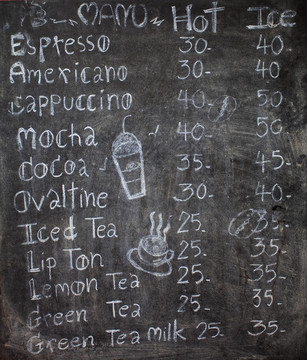 MANU Hot Ice
Espresso 30- 40-
Americano 30- 40-
Cappuccino 40- 50-
Mocha 40- 50-
Cocoa 35- 45-
Ovaltine 30- 40-
Iced Tea 25- 35-
Lip Ton 25- 35-
Lemon Tea 25- 35-
Green Tea 25- 35-
Green Tea milk 25- 35-